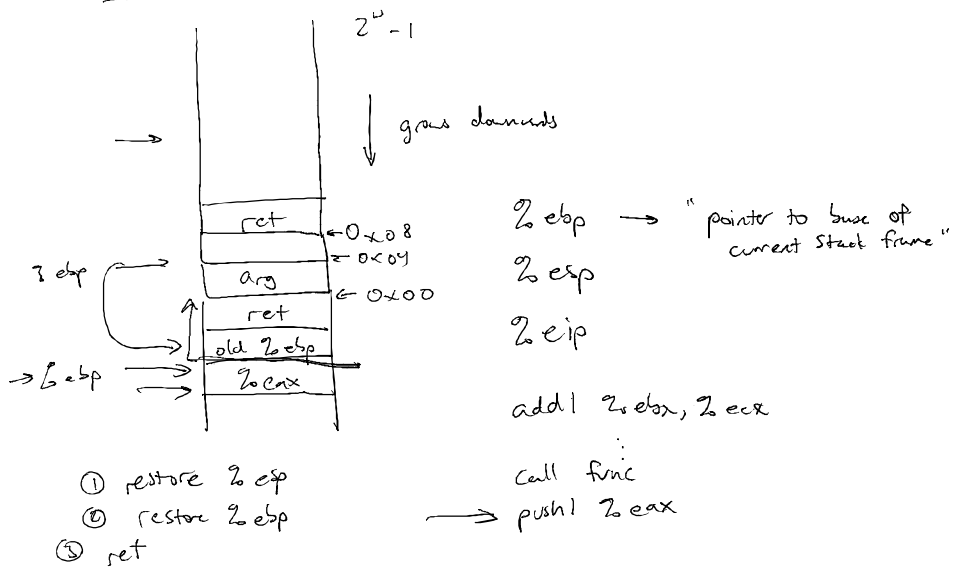 2^w - 1
grows downwards
ret
←0x08
←0x04
% ebp
arg
←0x00
ret
old %ebp
→ % ebp
%eax
% ebp → "pointer to base of
current stack frame"
% esp
% eip
addl %ebx, %ecx
⋮
call func
→ pushl %eax
① restore %esp
② restore %ebp
③ ret